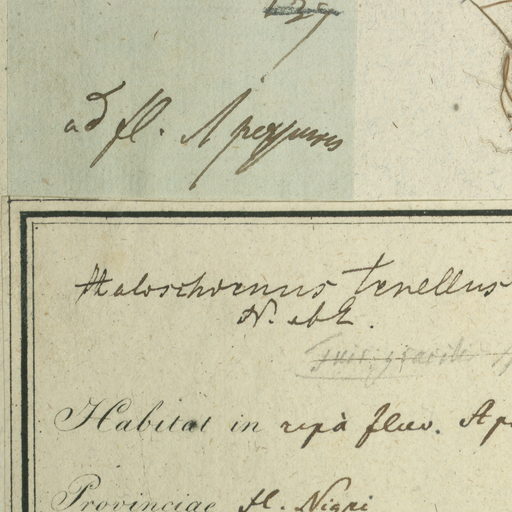 ad fl. Apexjuros
Haloschoenus tenellus
N. ab E.
Habitat in ripâ fluv. Ap
Provinciae fl. Nigri